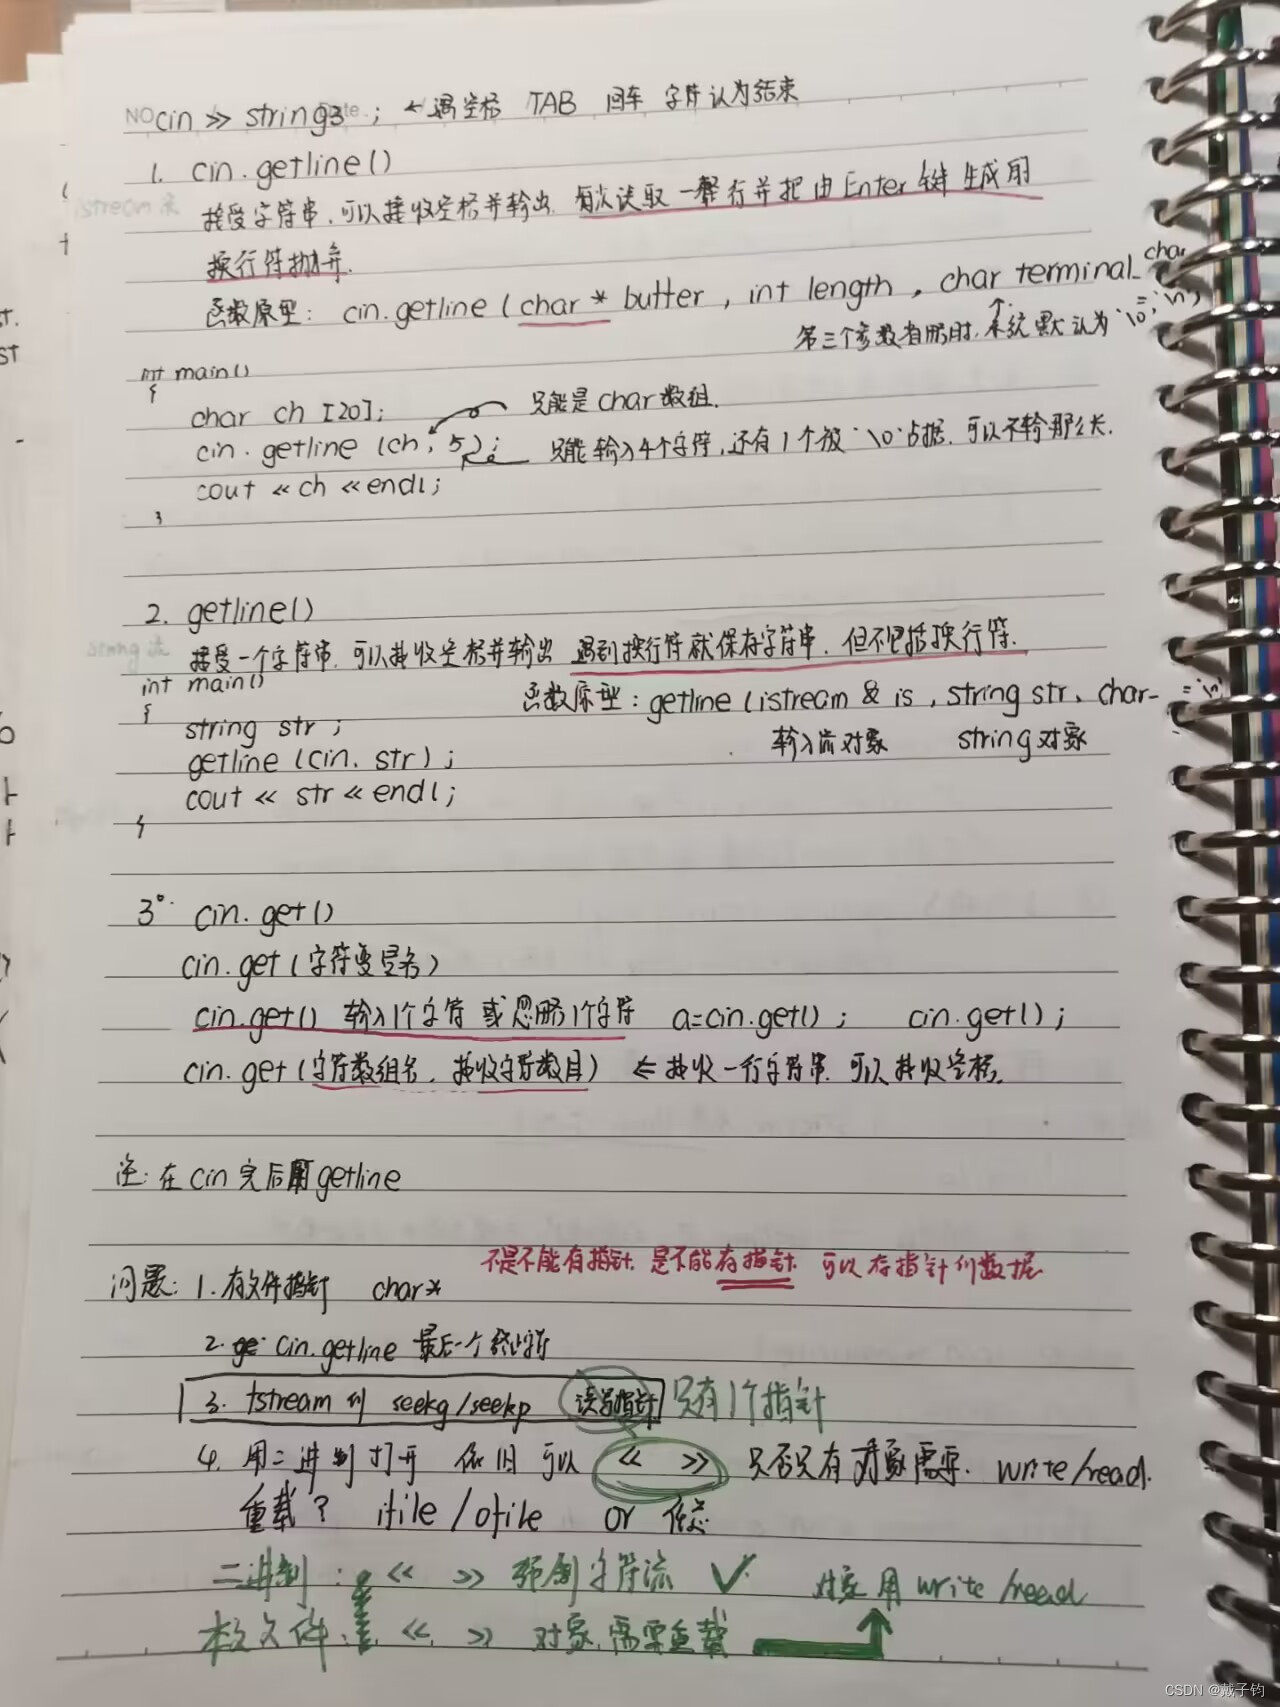 NO cin >> string3 ; ← 遇空格 TAB 回车 字符认为结束
1. cin.getline()
istream流
接受字符串,可以接收空格并输出. 每次读取一整行并把由Enter键生成的
换行符抛弃.
函数原型: cin.getline (char* butter , int length , char terminal_char
= '\n')
第三个参数省略时,系统默认为'\0'
int main()
{
char ch [20]; 只能是char数组.
cin.getline (ch, 5); 只能输入4个字符,还有1个被'\0'占据.可以不输那么长.
cout << ch << endl;
}
2. getline()
string流
接受一个字符串,可以接收空格并输出 遇到换行符就保存字符串,但不包括换行符.
int main()
{
函数原型: getline (istream & is , string str, char- = '\n')
string str ;
输入流对象 string对象
getline (cin, str) ;
cout << str << endl;
}
3°. cin.get()
cin.get (字符变量名)
cin.get() 输入1个字符 或忽略1个字符 a=cin.get() ; cin.get() ;
cin.get (字符数组名, 接收字符数目) ⇐ 接收一行字符串,可以接收空格.
注: 在cin完后用getline
不是不能有指针,是不能存指针,可以存指针的数据
问题: 1. 有文件指针 char*
2. cin.getline 最后一个终止符
3. fstream 的 seekg/seekp 读写指针 只有1个指针
4. 用二进制打开 依旧可以 << >> 只有对象需要 write/read.
重载? ifile / ofile or
二进制: << >> 强制字符流 ✓ 对象用 write/read
本文件: << >> 对象,需要重载
CSDN @戴子钧